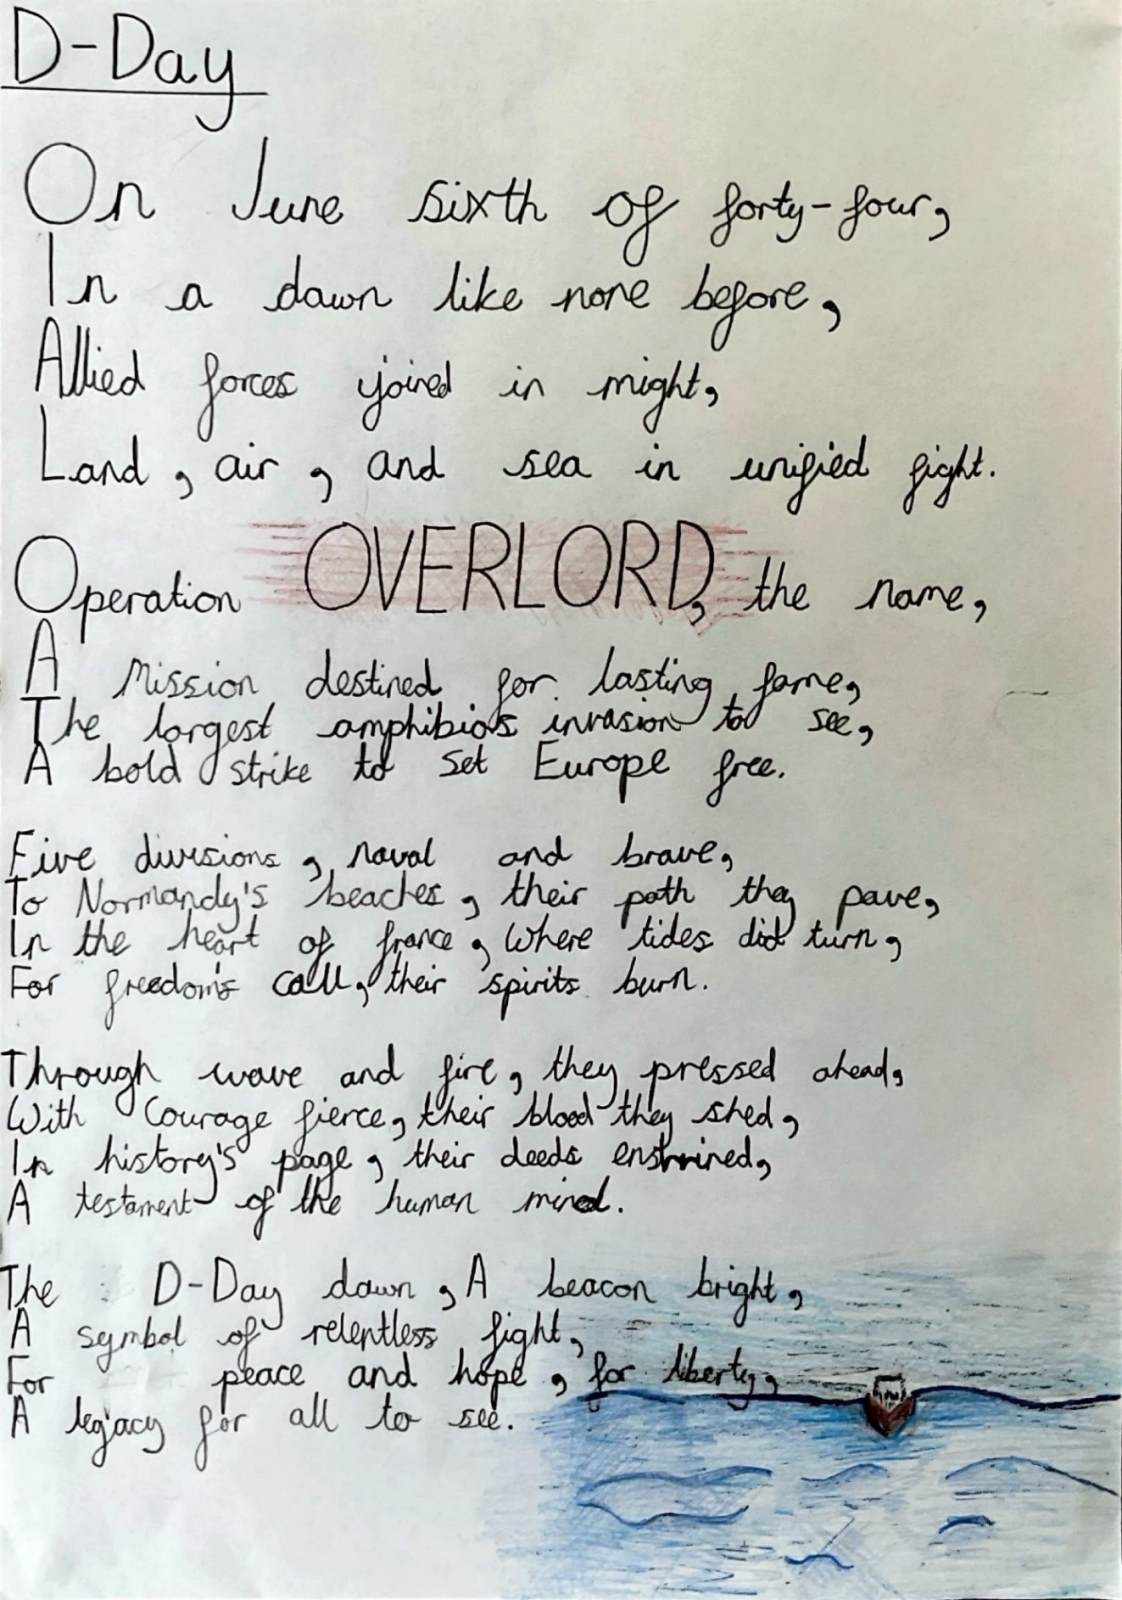 D-Day
On June sixth of forty-four,
In a dawn like none before,
Allied forces joined in might,
Land, air, and sea in unified fight.
Operation OVERLORD, the name,
A Mission destined for lasting fame,
The largest amphibios invasion to see,
A bold strike to set Europe free.
Five divisions, naval and brave,
To Normandy's beaches, their path they pave,
In the heart of france, Where tides did turn,
For freedom's call, their spirits burn.
Through wave and fire, they pressed ahead,
With Courage fierce, their blood they shed,
In history's page, their deeds enshrined,
A testament of the human mind.
The D-Day dawn, A beacon bright,
A symbol of relentless fight,
For peace and hope, for liberty,
A legacy for all to see.